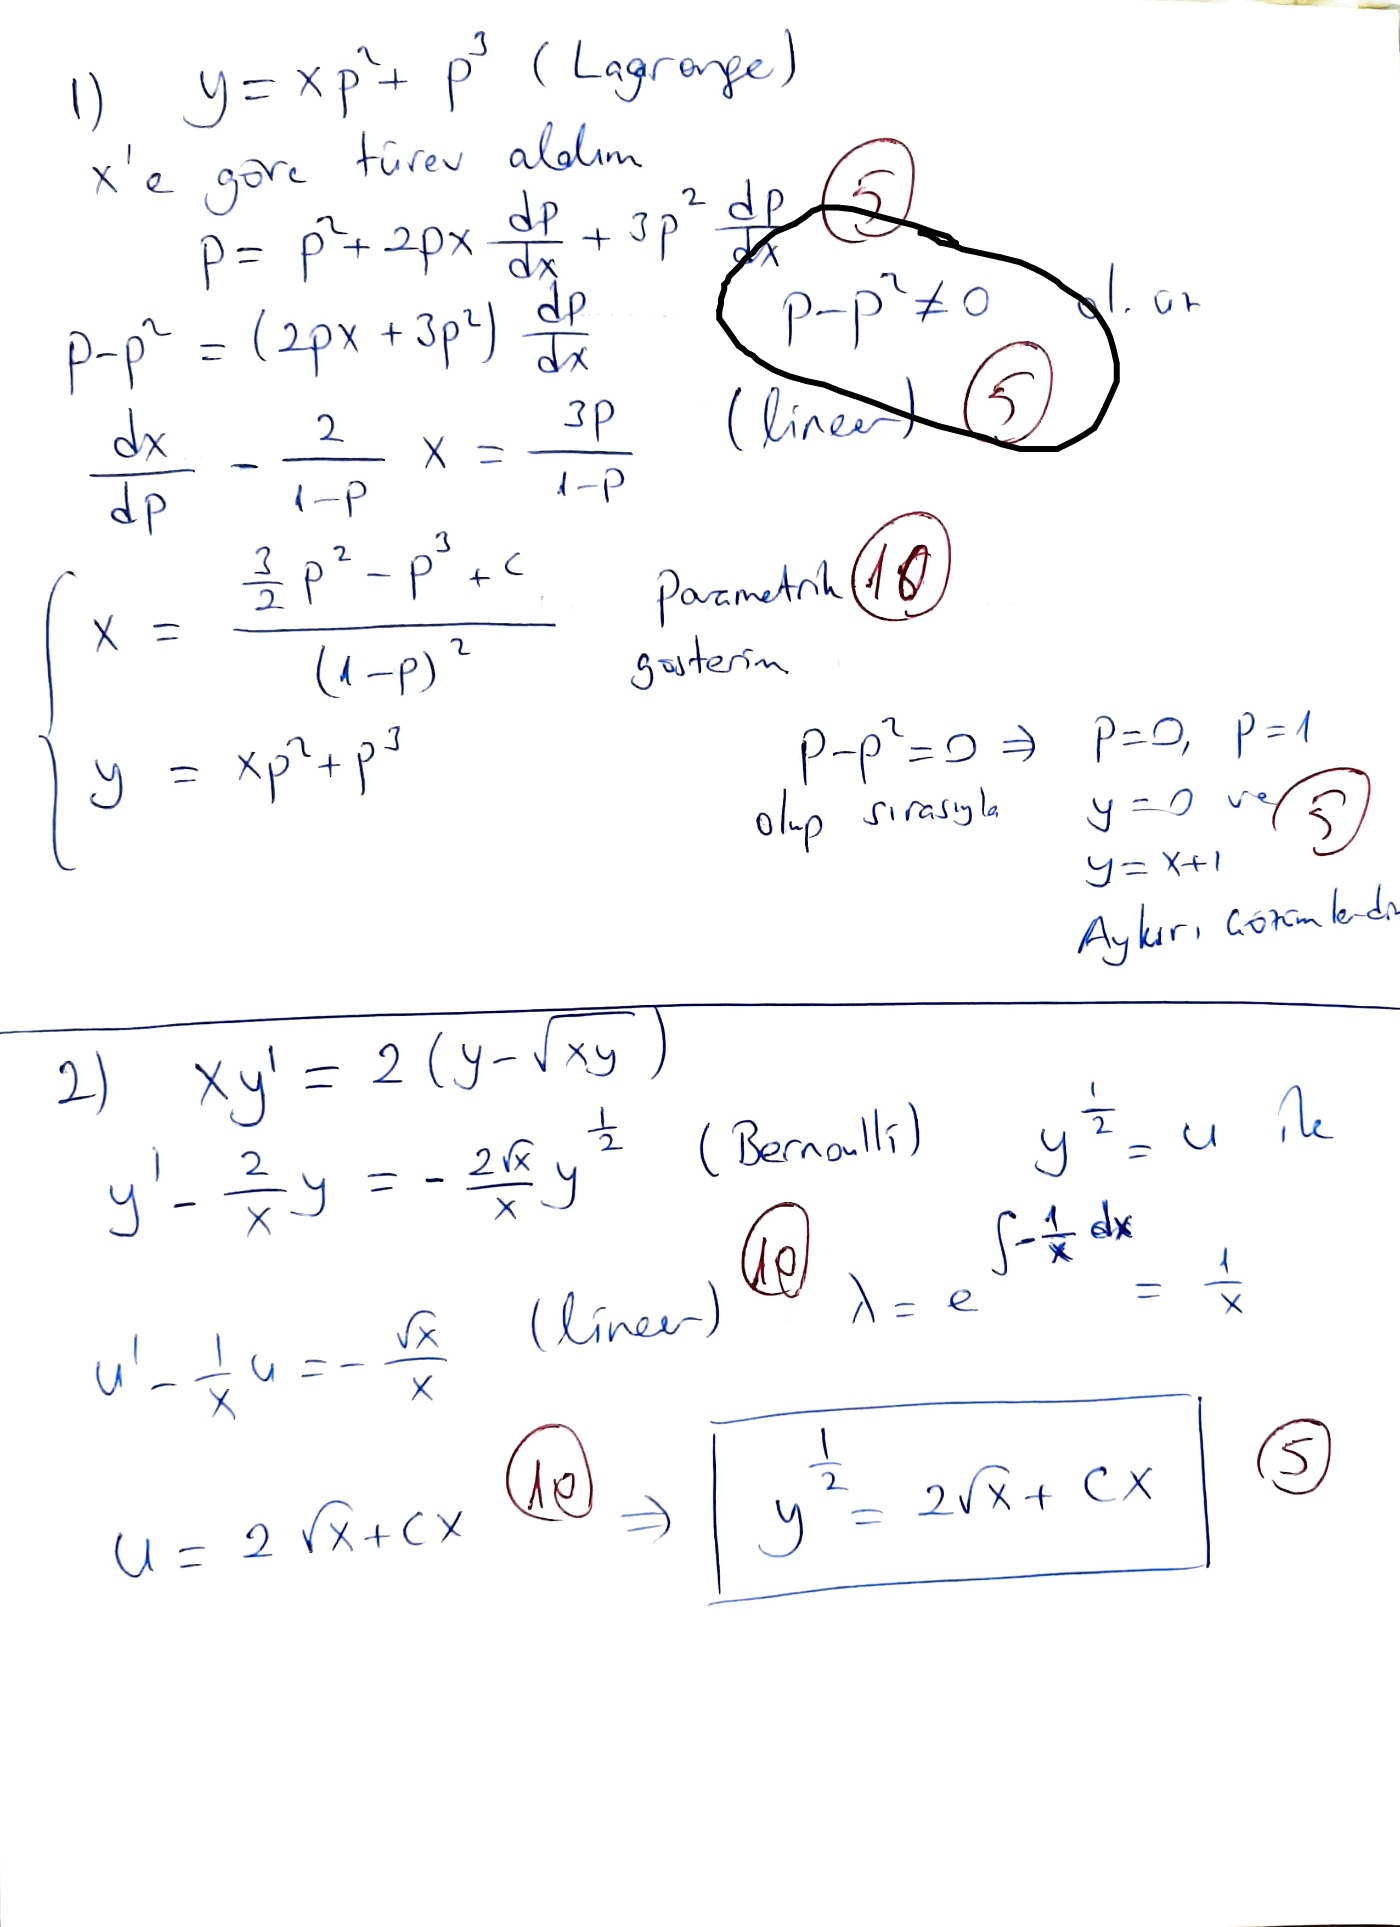 1) y = xp² + p³ (Lagrange)
x'e göre türev aldım
p = p² + 2px dp/dx + 3p² dp/dx (5)
p-p² = (2px + 3p²) dp/dx p-p² ≠ 0
dx/dp - 2/(1-p) x = 3p/(1-p) (lineer) (5)
x = (3/2 p² - p³ + c)/(1-p)² Parametrik (10)
gösterim
y = xp² + p³
p-p² = 0 ⇒ p=0, p=1
olup sırasıyla y=0 ve (5)
y = x+1
Aykırı çözümlerdir
2) xy' = 2(y-√xy)
y' - 2/x y = - 2√x/x y^1/2 (Bernoulli) y^1/2 = u ile
u' - 1/x u = - √x/x (lineer) (10) λ = e^∫-1/x dx = 1/x
u = 2√x + cx (10) ⇒ y^1/2 = 2√x + cx (5)